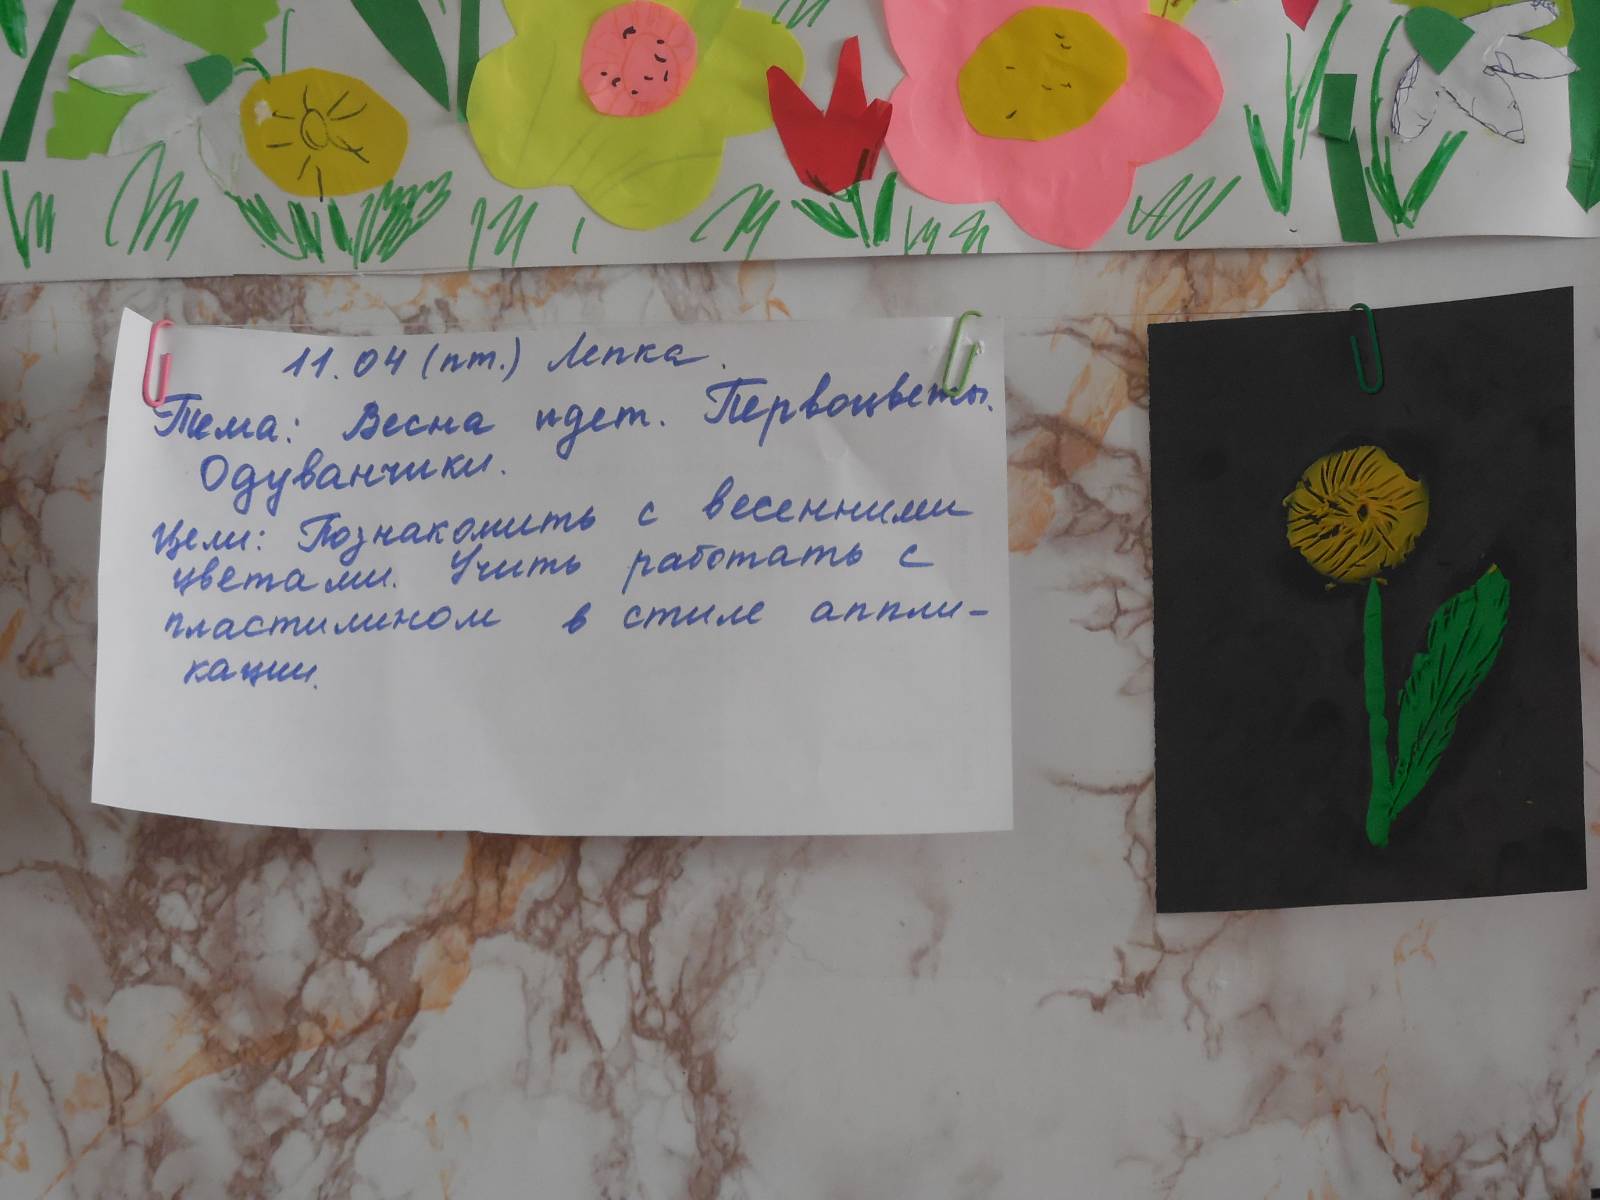 11.04 (пт.) Лепка.
Тема: Весна идет. Первоцветы.
Одуванчики.
Цели: Познакомить с весенними
цветами. Учить работать с
пластилином в стиле аппли-
кации.